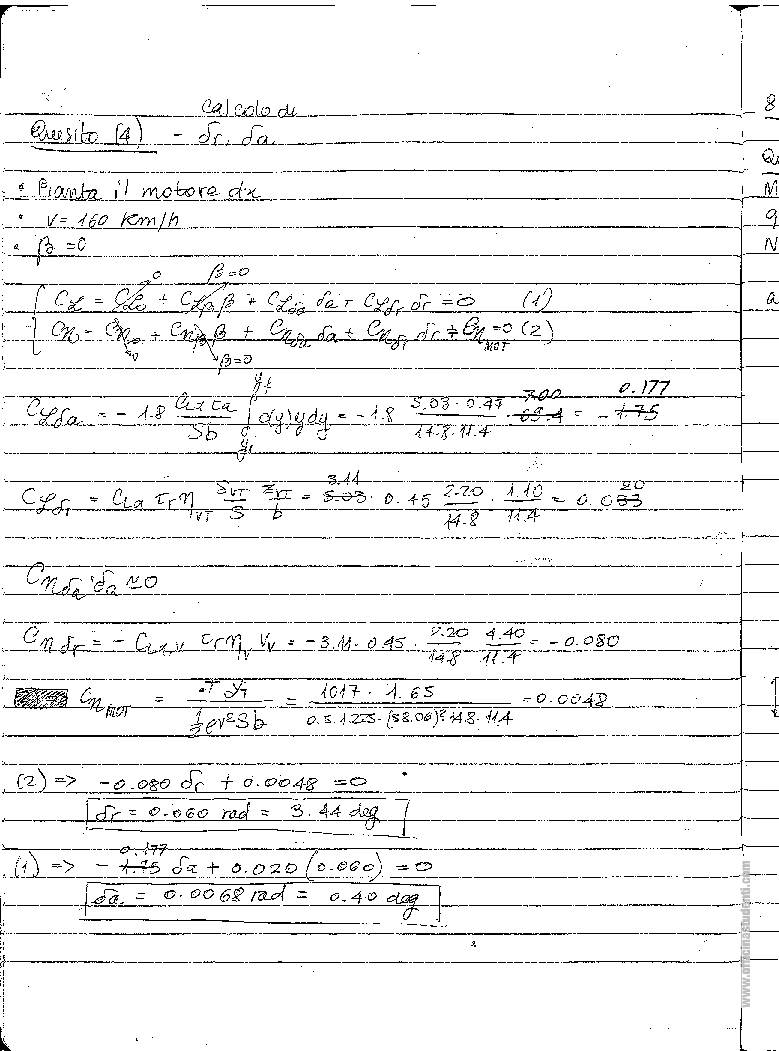 Calcolo di
Quesito (4) - δr, δa
• Pianta il motore dx
• V = 160 Km/h
• β = 0
0 β=0
Cℒ = Cℒ0 + Cℒβ β + Cℒδa δa + Cℒδr δr = 0 (1)
Cn = Cn0 + Cnβ β + Cnδa δa + Cnδr δr + CnMOT = 0 (2)
=0 β=0
Cℒδa = -1.8 CLα τa / Sb ∫ c(y) y dy = -1.8 5.03 · 0.47 / 14.8 · 11.4 · 7.00 = -0.177
Cℒδr = CLα τr ηVT SVT/S zVT/b = 3.11 · 0.45 2.20/14.8 · 1.10/11.4 = 0.020
Cnδa · δa ≈ 0
Cnδr = - CLα,V τr ηV VV = -3.11 · 0.45 · 2.20/14.8 4.40/11.4 = -0.080
CnMOT = T yT / ½ρV²Sb = 1017 · 1.65 / 0.5 · 1.225 · (58.06)² · 14.8 · 11.4 = 0.0048
(2) => -0.080 δr + 0.0048 = 0
δr = 0.060 rad = 3.44 deg
(1) => -0.177 δa + 0.020 (0.060) = 0
δa = 0.0068 rad = 0.40 deg
8
Q
M
9
N
a
www.officinastudenti.com